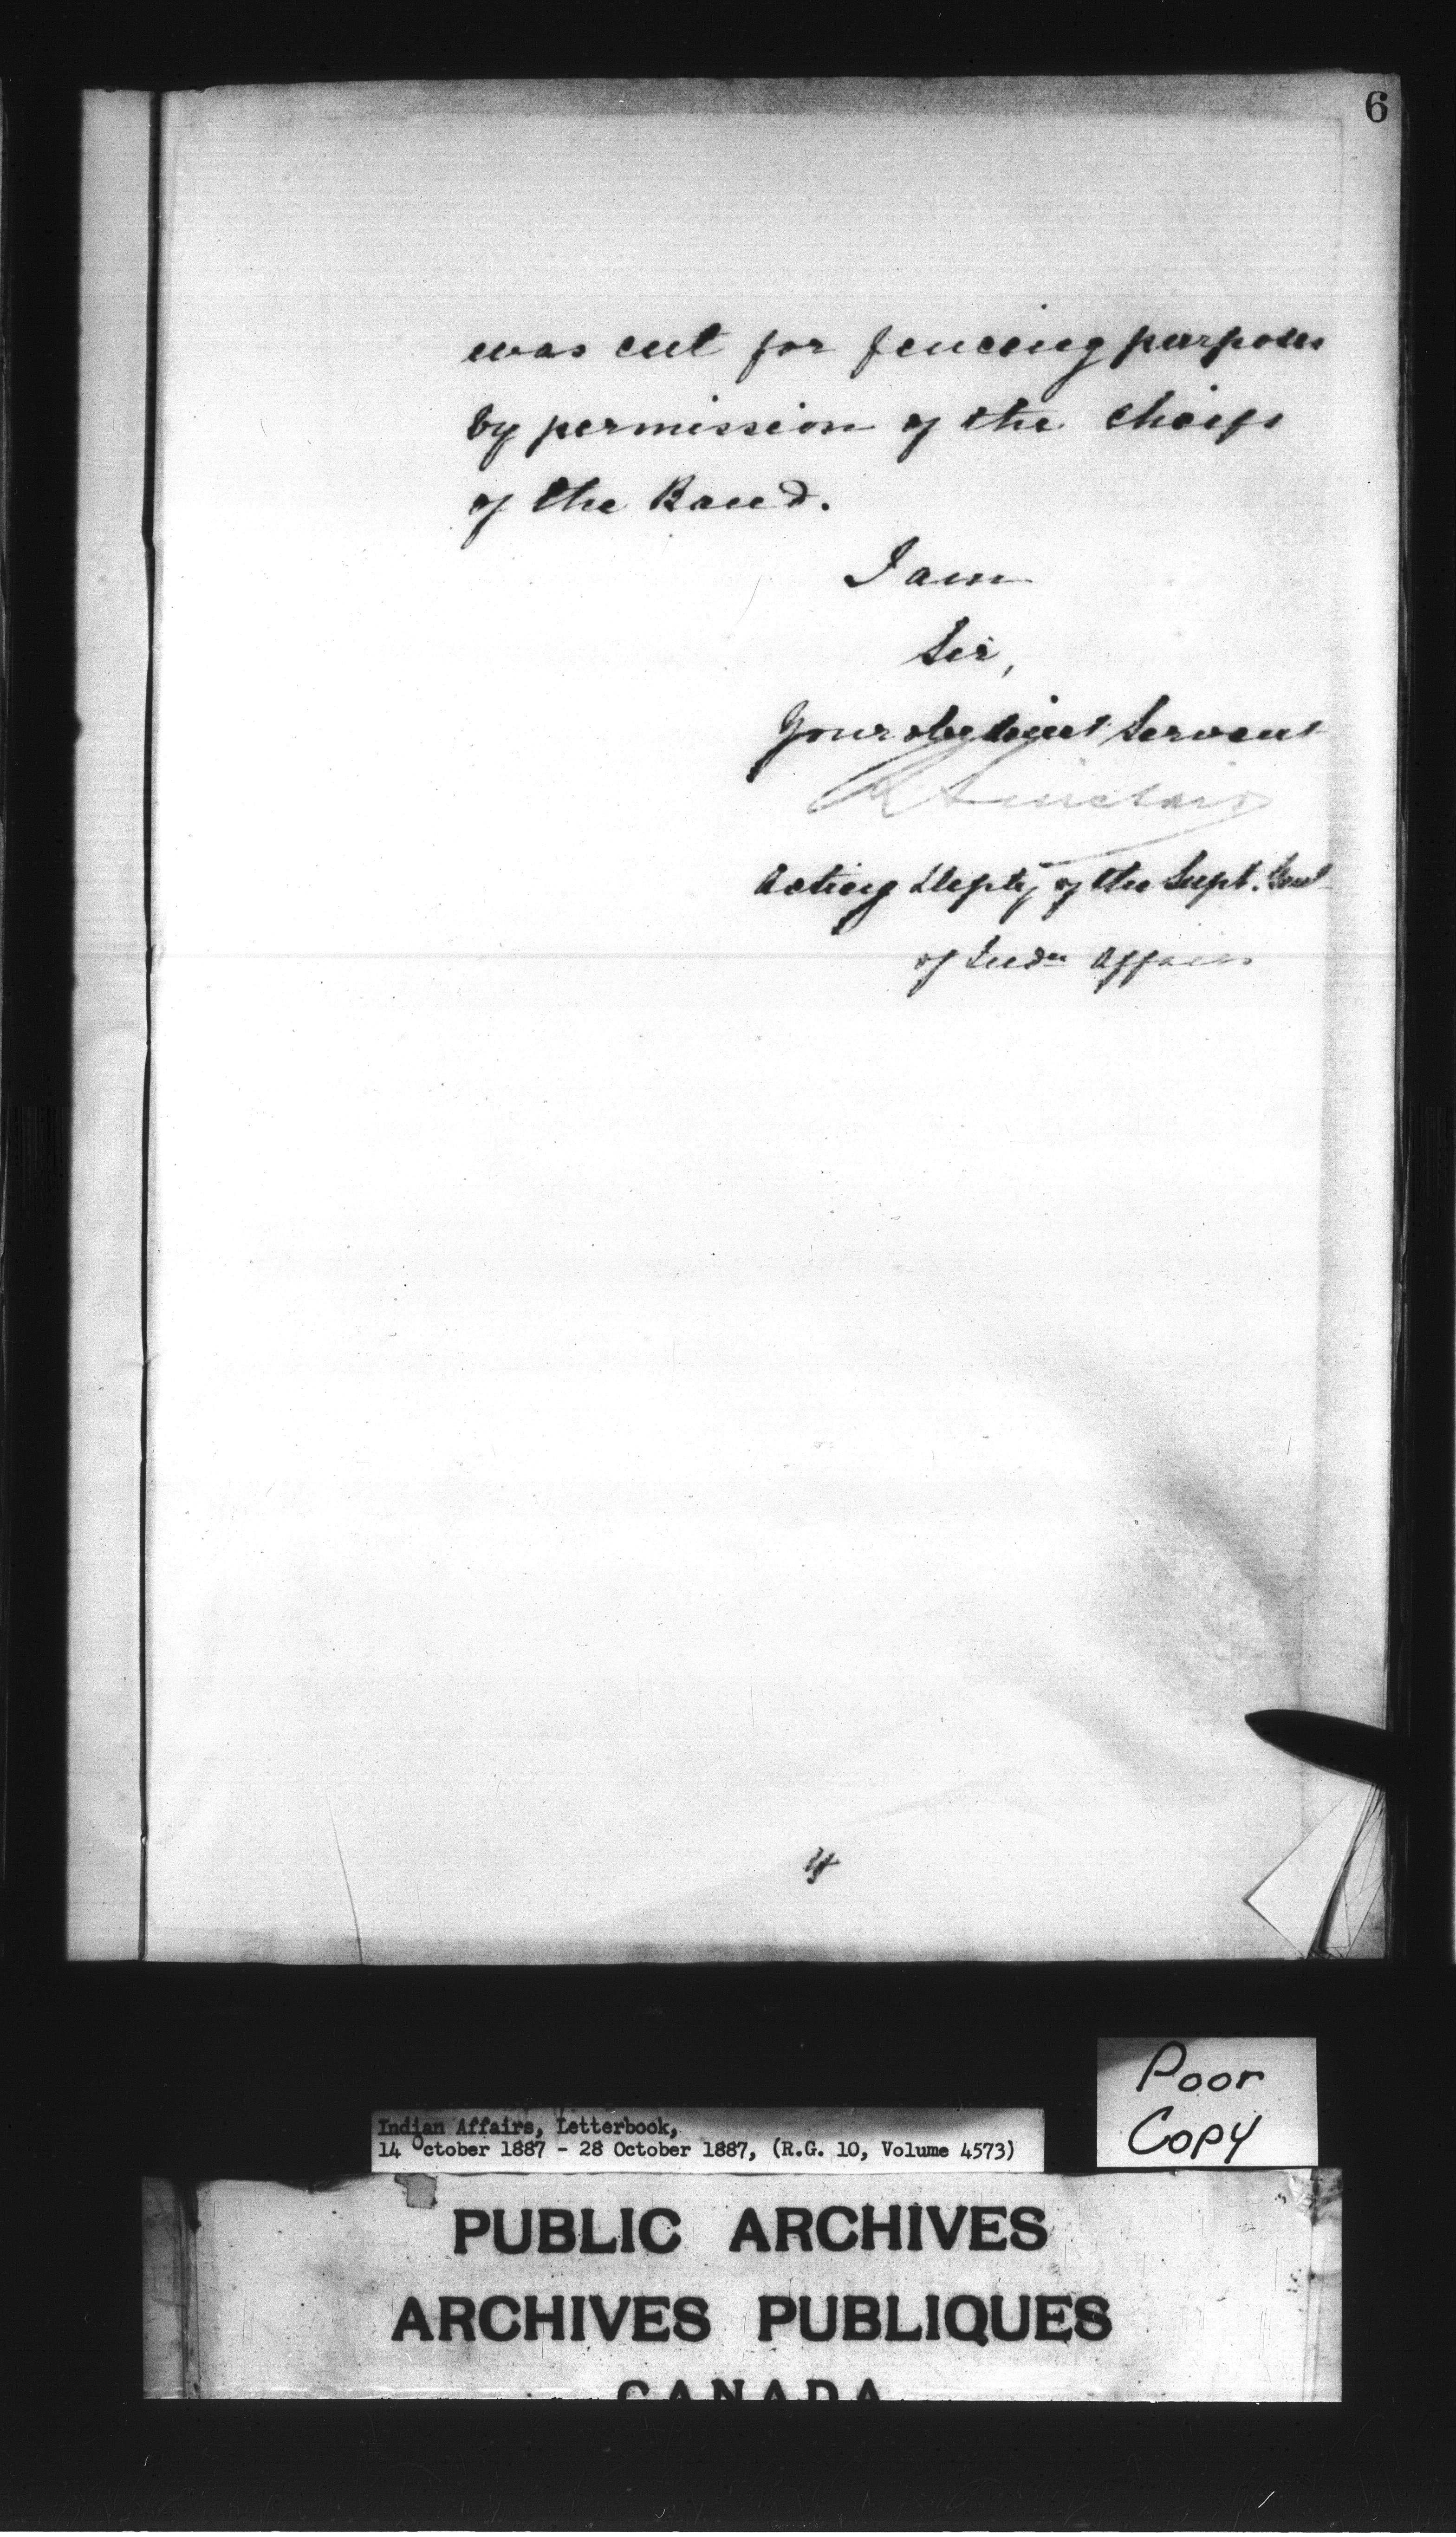 6
was cut for fencing purposes
by permission of the Cheifs
of the Band.
I am
Sir,
Your obedient Servant
R Sinclair
Acting Depty of the Supt. Genl
of Indn Affairs
Poor
Copy
Indian Affairs, Letterbook,
14 October 1887 - 28 October 1887, (R.G. 10, Volume 4573)
PUBLIC ARCHIVES
ARCHIVES PUBLIQUES
CANADA